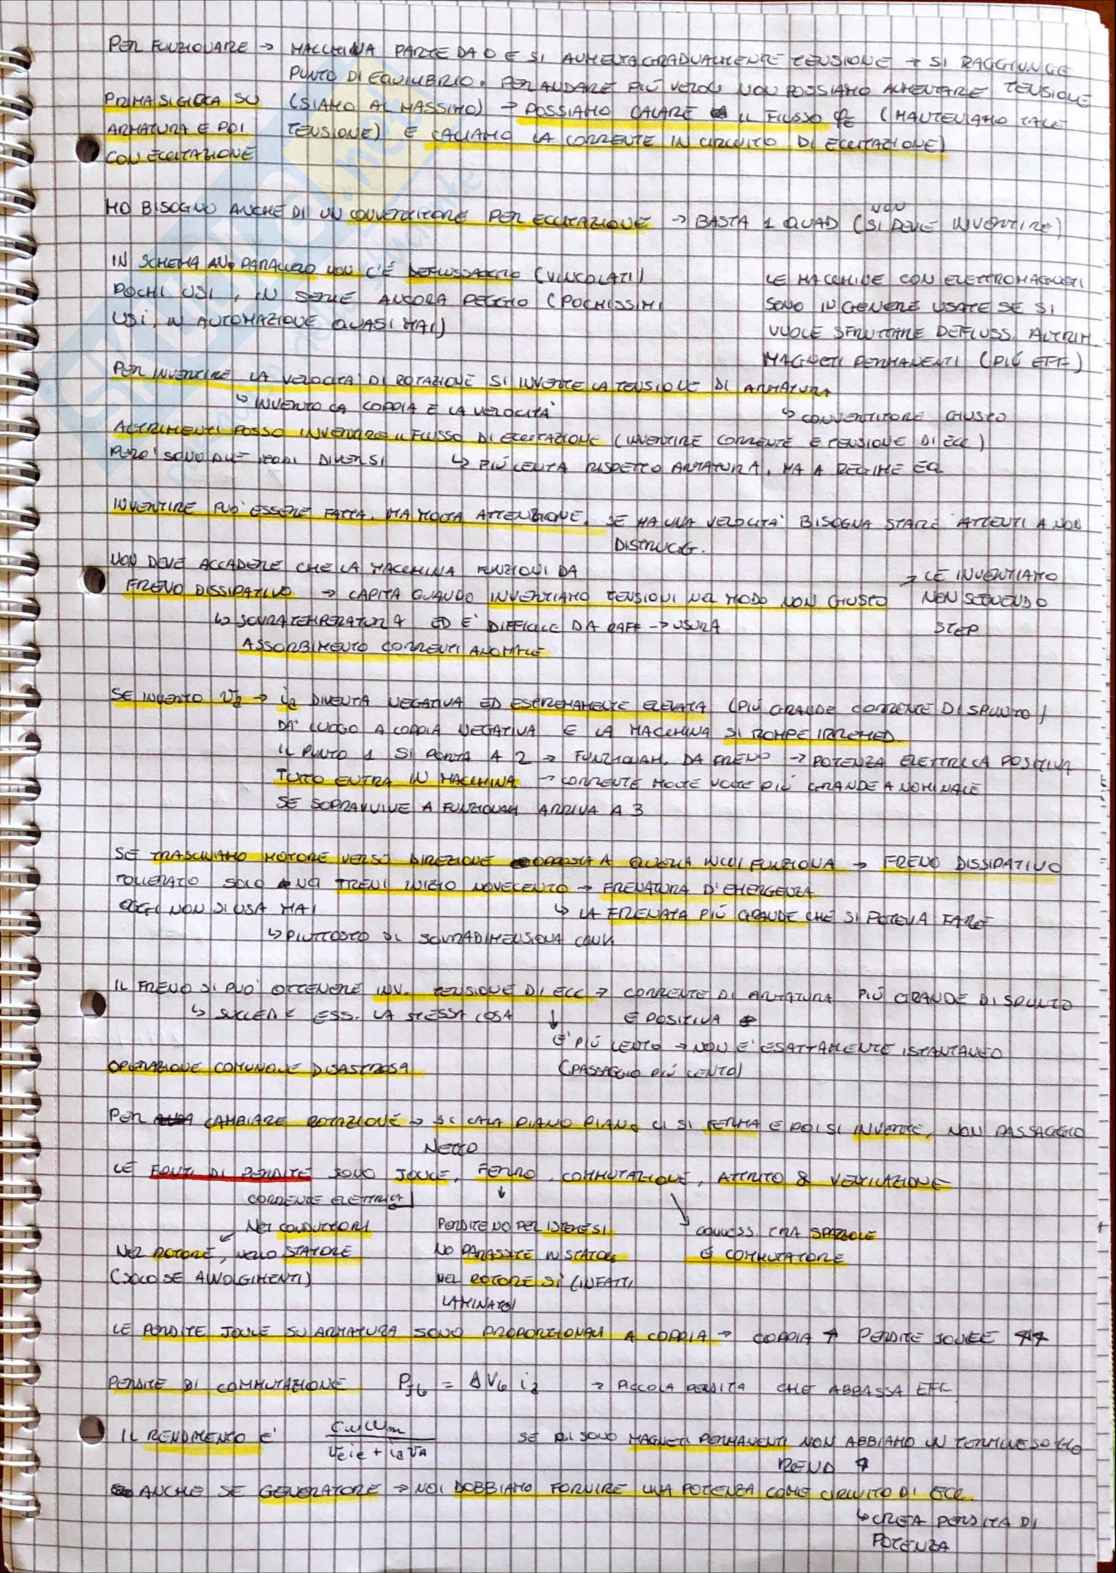 PER FUNZIONARE → MACCHINA PARTE DA 0 E SI AUMENTA GRADUALMENTE TENSIONE → SI RAGGIUNGE
PUNTO DI EQUILIBRIO. PER ANDARE PIÙ VELOCI NON POSSIAMO AUMENTARE TENSIONE
PRIMA SI GIOCA SU (SIAMO AL MASSIMO) → POSSIAMO CALARE IL FLUSSO φe (MANTENIAMO TALE
ARMATURA E POI TENSIONE) E CALIAMO LA CORRENTE IN CIRCUITO DI ECCITAZIONE)
CON ECCITAZIONE
HO BISOGNO ANCHE DI UN CONVERTITORE PER ECCITAZIONE → BASTA 1 QUAD (NON SI DEVE INVERTIRE)
IN SCHEMA PARALLELO NON C'È DEFLUSSAGGIO (VINCOLATI)
POCHI USI, IN SERIE ANCORA PEGGIO (POCHISSIMI
USI, IN AUTOMAZIONE QUASI MAI)
LE MACCHINE CON ELETTROMAGNETI
SONO IN GENERE USATE SE SI
VUOLE SFRUTTARE DEFLUSS. ALTRIM
MAGNETI PERMANENTI (PIÙ EFF)
PER INVERTIRE LA VELOCITÀ DI ROTAZIONE SI INVERTE LA TENSIONE DI ARMATURA
↳ INVERTO LA COPPIA E LA VELOCITÀ ↳ CONVERTITORE GIUSTO
ALTRIMENTI POSSO INVERTIRE IL FLUSSO DI ECCITAZIONE (INVERTIRE CORRENTE E TENSIONE DI ECC)
PERÒ SONO DUE MODI DIVERSI ↳ PIÙ LENTA RISPETTO ARMATURA, MA A REGIME EQ
INVERTIRE PUÒ ESSERE FATTA, MA MOLTA ATTENZIONE. SE HA UNA VELOCITÀ BISOGNA STARE ATTENTI A NON
DISTRUGG.
NON DEVE ACCADERE CHE LA MACCHINA FUNZIONI DA
FRENO DISSIPATIVO → CAPITA QUANDO INVERTIAMO TENSIONI NEL MODO NON GIUSTO
→ LE INVERTIAMO
NON SEGUENDO
STEP
↳ SOVRATEMPERATURA ED È DIFFICILE DA RAFF → USURA
ASSORBIMENTO CORRENTI ANOMALE
SE INVERTO Va → ia DIVENTA NEGATIVA ED ESTREMAMENTE ELEVATA (PIÙ GRANDE CORRENTE DI SPUNTO)
DÀ LUOGO A COPPIA NEGATIVA E LA MACCHINA SI ROMPE IRRIMED.
IL PUNTO 1 SI PORTA A 2 → FUNZIONAM. DA FRENO → POTENZA ELETTRICA POSITIVA
TUTTO ENTRA IN MACCHINA → CORRENTE MOLTE VOLTE PIÙ GRANDE A NOMINALE
SE SOPRAVVIVE A FUNZIONAM ARRIVA A 3
SE TRASCINIAMO MOTORE VERSO DIREZIONE OPPOSTA A QUELLA IN CUI FUNZIONA → FRENO DISSIPATIVO
TOLLERATO SOLO NEI TRENI INIZIO NOVECENTO → FRENATURA D'EMERGENZA
OGGI NON SI USA MAI ↳ LA FRENATA PIÙ GRANDE CHE SI POTEVA FARE
↳ PIUTTOSTO DI SOVRADIMENSIONA CONV.
IL FRENO SI PUÒ OTTENERE INV. TENSIONE DI ECC → CORRENTE DI ARMATURA PIÙ GRANDE DI SPUNTO
↳ SUCCEDE ESS. LA STESSA COSA ↓ E POSITIVA
È PIÙ LENTO → NON È ESATTAMENTE ISTANTANEO
OPERAZIONE COMUNQUE DISASTROSA (PASSAGGIO PIÙ LENTO)
PER CAMBIARE ROTAZIONE → SI CALA PIANO PIANO, CI SI FERMA E POI SI INVERTE, NON PASSAGGIO
NETTO
LE FONTI DI PERDITE SONO JOULE, FERRO, COMMUTAZIONE, ATTRITO & VENTILAZIONE
CORRENTE ELETTRICA
NEI CONDUTTORI
NEL ROTORE, NELLO STATORE
(SOLO SE AVVOLGIMENTI)
PERDITE NO PER ISTERESI
NO PARASSITE IN STATORE
NEL ROTORE SÌ (INFATTI
LAMINATO)
CONNESS TRA SPAZZOLE
E COMMUTATORE
LE PERDITE JOULE SU ARMATURA SONO PROPORZIONALI A COPPIA → COPPIA ↑ PERDITE JOULE ↑↑
PERDITE DI COMMUTAZIONE Pjb = ΔVb ia → PICCOLA PERDITA CHE ABBASSA EFF
IL RENDIMENTO È Cm ωm / (Ve ie + ia Va) SE CI SONO MAGNETI PERMANENTI NON ABBIAMO UN TERMINE SOTTO
REND ↑
ANCHE SE GENERATORE → NOI DOBBIAMO FORNIRE UNA POTENZA COME CIRCUITO DI ECC.
↳ CREA PERDITA DI
POTENZA